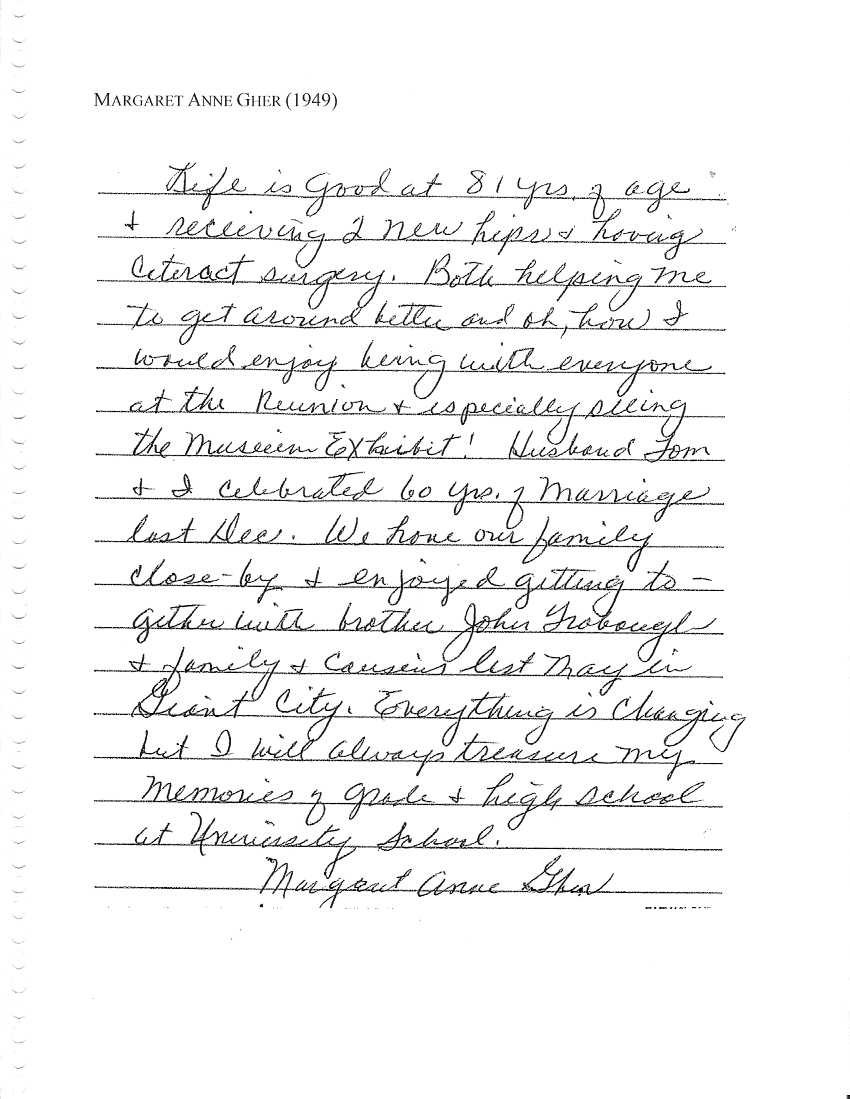 MARGARET ANNE GHER (1949)
Life is Good at 81 yrs. of age
& receiving 2 new hips & having
Ceteract surgery. Both helping me
to get around better and oh, how I
would enjoy being with everyone
at the Reunion & especially seeing
the Museum Exhibit! Husband Tom
& I celebrated 60 yrs. of Marriage
last Dec. We have our family
close-by & enjoyed getting to-
gether with brother John
& family & Cousins last May in
Giant City. Everything is Changing
but I will always treasure my
Memories of grade & high school
at University School.
Margaret Anne Gher